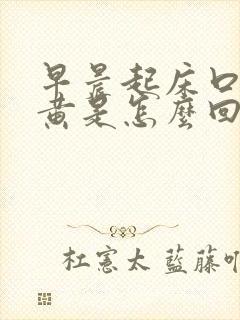 早晨起床口
黄是怎麼回
杜憲太 藍藤